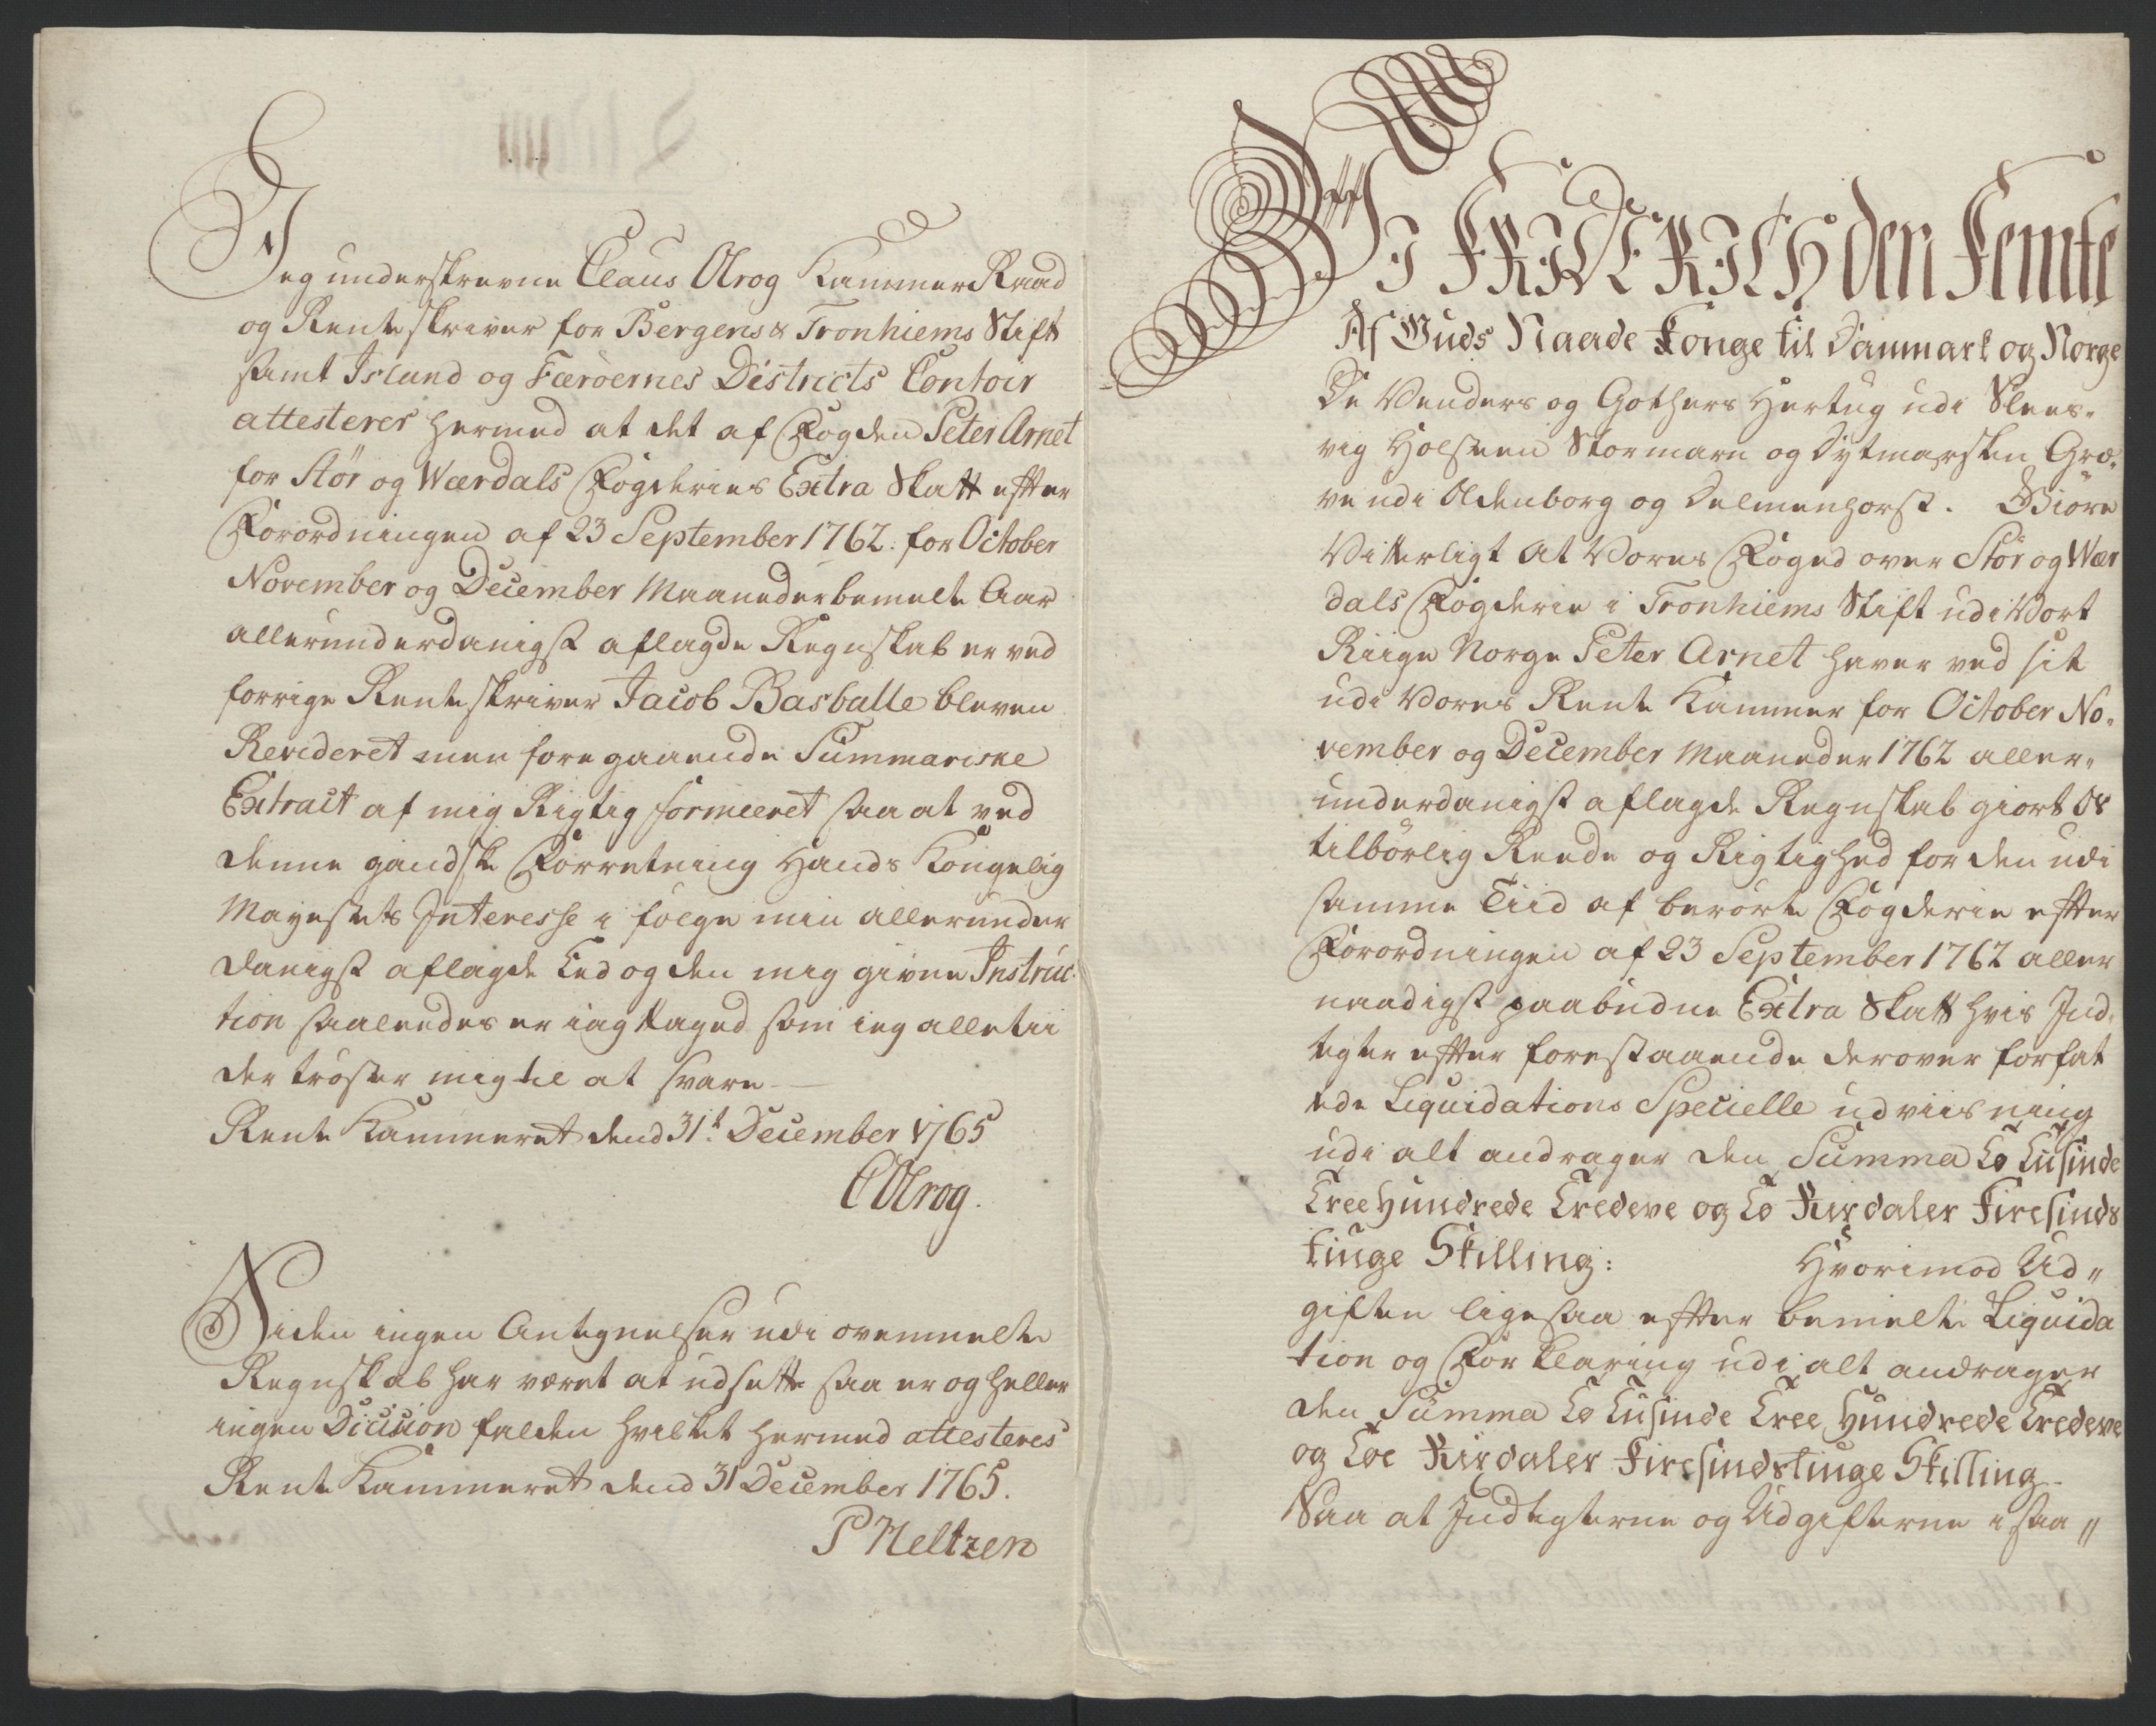 Jeg underskrevne Claus Olrog Kammer Raad
og Renteskriver for Bergens & Tronhiems Stift
samt Island og Færöernes Districts Contoir
attesterer hermed at det af Fogden Peter Arnet
for Stör og Wærdals Fogderies Extra Skatt efter
Forordningen af 23 September 1762. for October
November og December Maaneder bemelte Aar
allerunderdanigst aflagde Regnskab er ved
forrige Renteskriver Jacob Basballe bleven
Revideret men foregaaende Summariske
Extract af mig Rigtig formeeret saa at ved
denne gandske Forretning Hands Kongelig
Mayestets Interesse i folge min allerunder
danigst aflagde Eed og den mig givne Instruc-
tion saaledes er iagttaged som ieg alletii
der tröster mig til at svare
Rente Kammeret dend 31t December 1765
C Olrog.
Siden ingen Antegnelser udi ovenmelte
Regnskab har været at udsette saa er og heller
ingen Dicision falden hvilket hermed attesteres
Rente Kammeret dend 31 December 1765.
P Meltzen
Wi FRIDERICH den Femte
Af Guds Naade Konge til Danmark og Norge
De Venders og Gothers Hertug udi Slees-
vig Holsteen Stormarn og Dytmarsken Græ-
ve udi Oldenborg og Delmenhorst. Giöre
Vitterligt At Vores Foged over Stör og Wær
dals Fogderie i Tronhiems Stift udi Vort
Riige Norge Peter Arnet haver ved sit
udi Vores Rente Kammer for October No-
vember og December Maaneder 1762 aller-
underdanigst aflagde Regnskab giort Os
tilbörlig Reede og Rigtighed for den udi
samme Tiid af berörte Fogderie efter
Forordningen af 23 September 1762 aller
naadigst paabudne Extra Skatt hvis Ind-
tegter efter forestaaende derover forfat
tede Liquidations Specielle udviisning
udi alt andrager den Summa To Tusinde
Tree Hundrede Tredeve og To Rixdaler Firesinds
tiuge Skilling: Hvorimod Ud"
giften ligesaa efter bemelte Liquida
tion og Forklaring udi alt andrager
den Summa To Tusinde Tree Hundrede Tredeve
og Toe Rixdaler Firesindstiuge Skilling
Saa at Indtegterne og Udgifterne i saa "